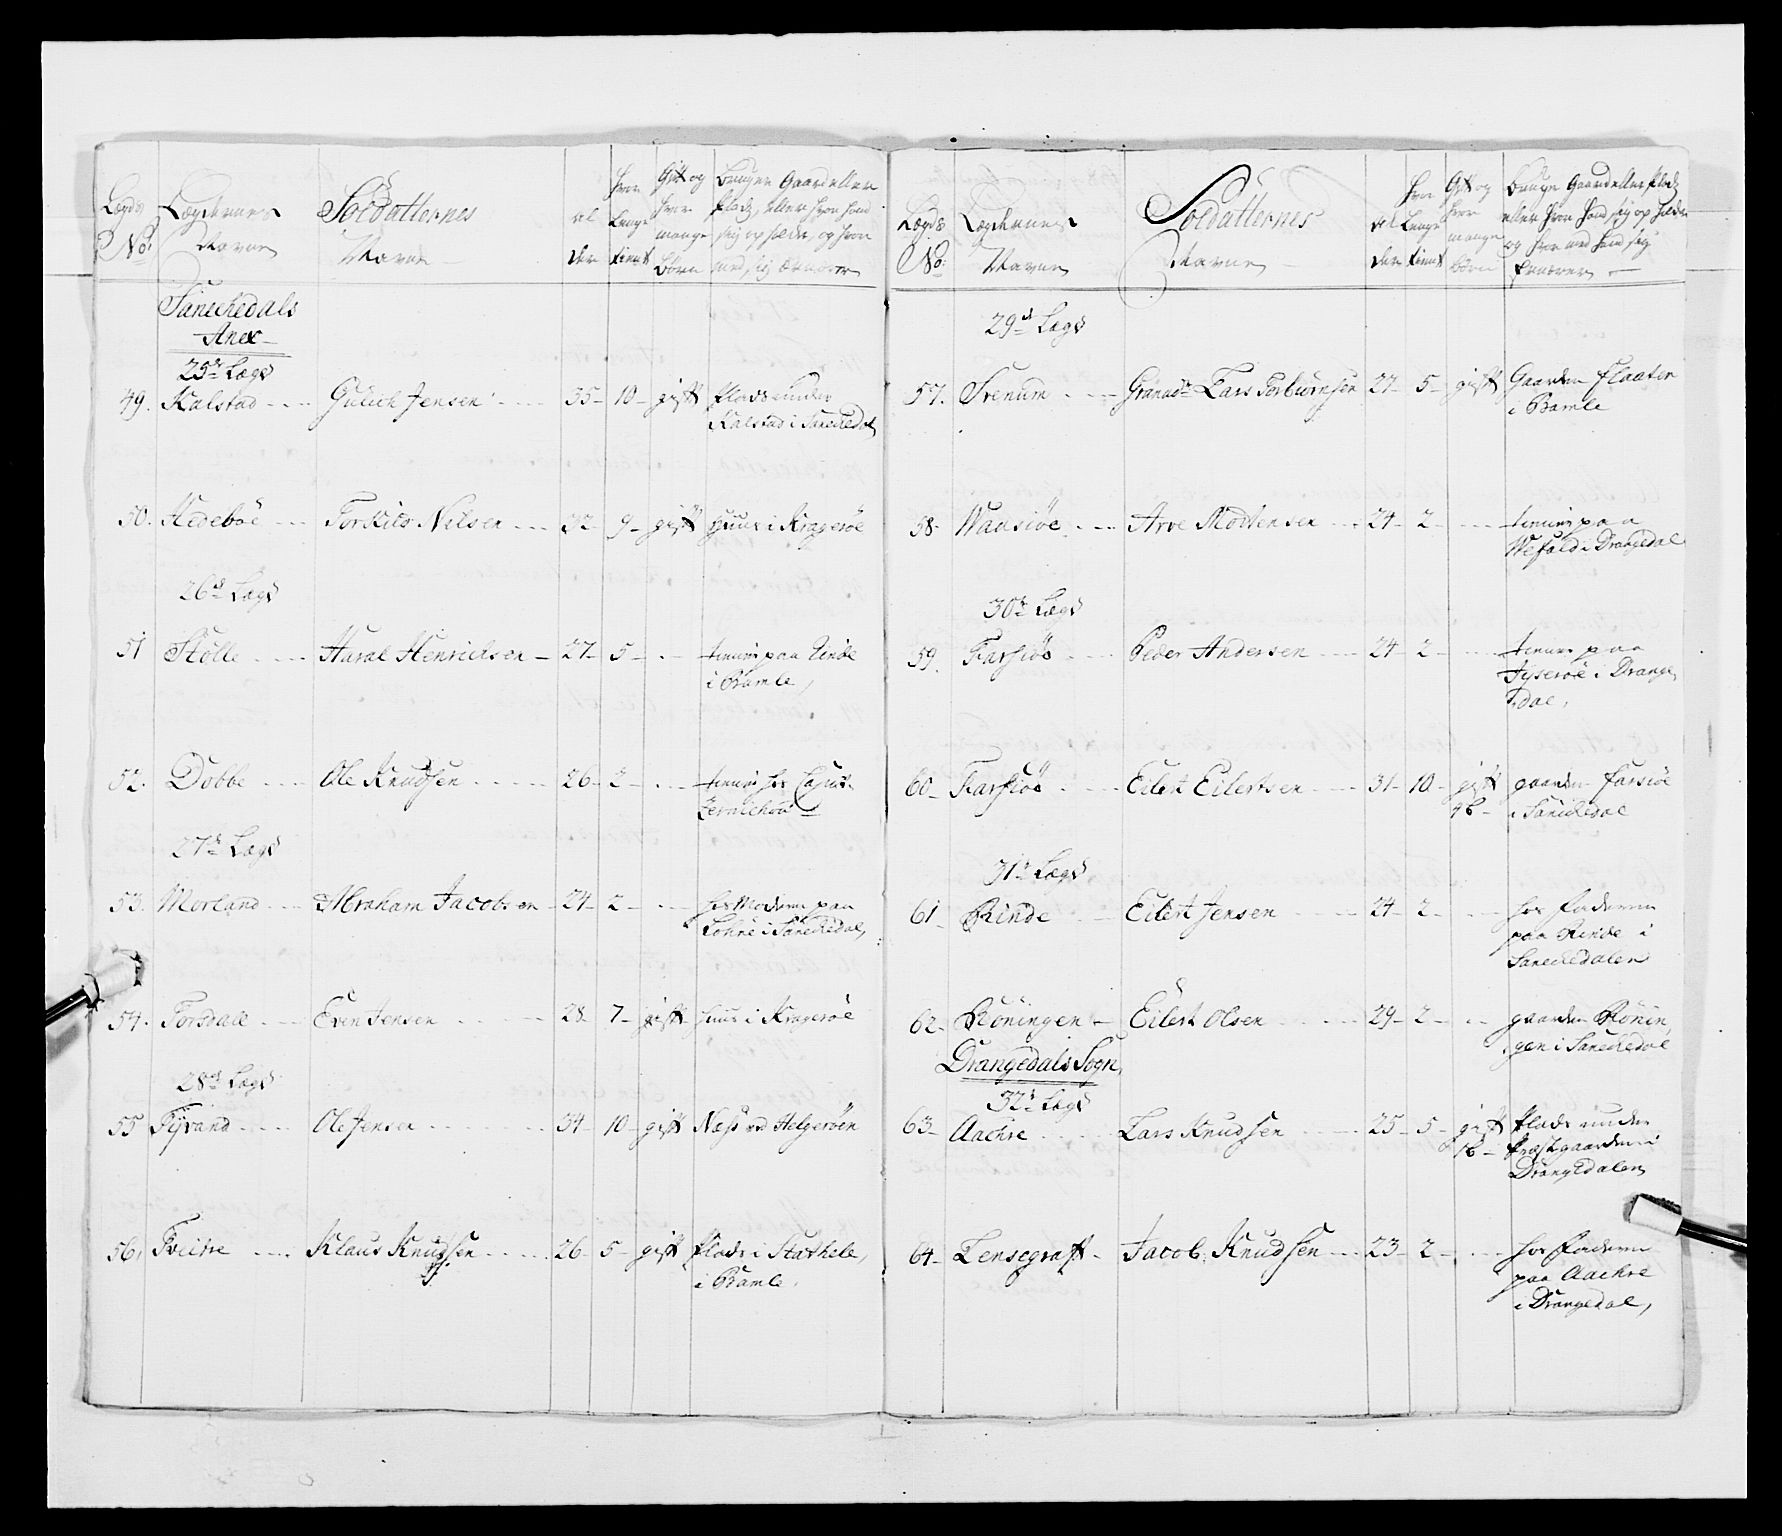 Lægds No:
Lægdernes Navne
Soldatternes Navne
al der
hvor Lenge tient
Gift og hvor mange Børn
Bruger Gaard eller Plads, eller hvor hand sig opholder, og hvor med sig Ernærer
Sanechedals
Anex
25de Lægd
49. Kalstad Gulich Jensen 35 10 gift Plads under
Kalstad i Sanechedal
50. Hedebøe Torkild Nilsen 32 9 gift Huus i Kragerøe
26de Lægd
51 Stølle Haral Henrichsen 27 5 tienner paa Rinde
i Bamle
52. Dobbe Ole Knudsen 26 2 tienner hos
27de Lægd
53. Morland Abraham Jacobsen 24 2 hos Moderen paa
i Sanechedal,
54. Torsdall Even Jensen 28 7 gift huus i Kragerøe
28de Lægd
55 Tyvand Ole Jensen 34 10 gift Næst ved Helgerøen
56, Tveitne Klaus Knudsen 26 5 gift Plads i Stathele,
i Bamle
Lægds No:
Lægdernes Navne
Soldatternes Navne
al der
hvor Lenge tient
Gift og hvor mange Børn
Bruger Gaard eller Plads eller hvor hand sig opholder og hvor med hand sig Ernærer
29de Lægd
57. Svenum Granade Lars Torbiørnsen 27 5 gift Gaarden Flaaten
i Bamle
58. Wadsiøe Arve Mortensen 24 2 tienner paa
Wefald i Drangedal
30de Lægd
59. Farsiøe Peder Andersen 24 2 tienner paa
i Drange
dal,
60 Farsiøe Eilert Eilertsen 31 10 gift gaarden Farsiøe
4b i Sanichedal
31de Lægd
61 Rinde Eilert Jensen 24 2 hos Faderen
paa Rinde i
Sanechedalen
62 Røningen Eilert Olsen 29 2 gaarden Rønin,
gen i Sanechedal
Drangedals Sogn,
32de Lægd
63 Aachre Lars Knudsen 25 5 gift Plads under
1b Præstgaarden i
Drangedalen
64 Lensegraft Jacob Knudsen 23 2 hos Faderen
paa Aachre
i Drangedal,